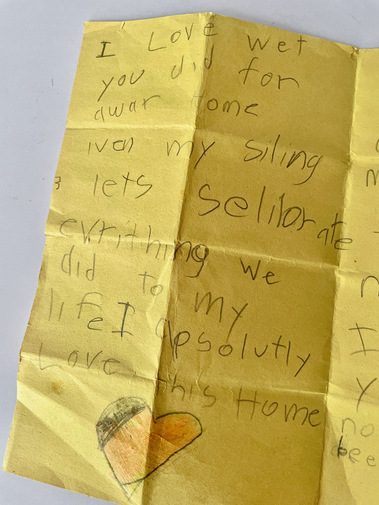 I Love wet
you did for
awar Home
iven my siling
lets selibrate
evrithing we
did to my
life I apsolutly
Love this Home
I
Y
no
bee